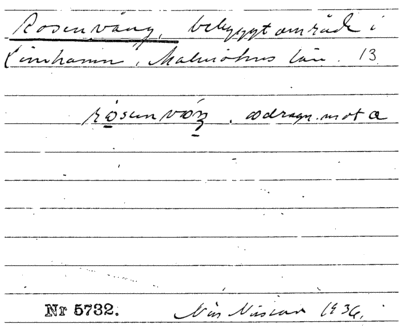 Rosenvång, bebyggt område i
Limhamn, Malmöhus län. 13
rosenvåŋ. o dragn. mot a
Nr 5732. Nils 1936.